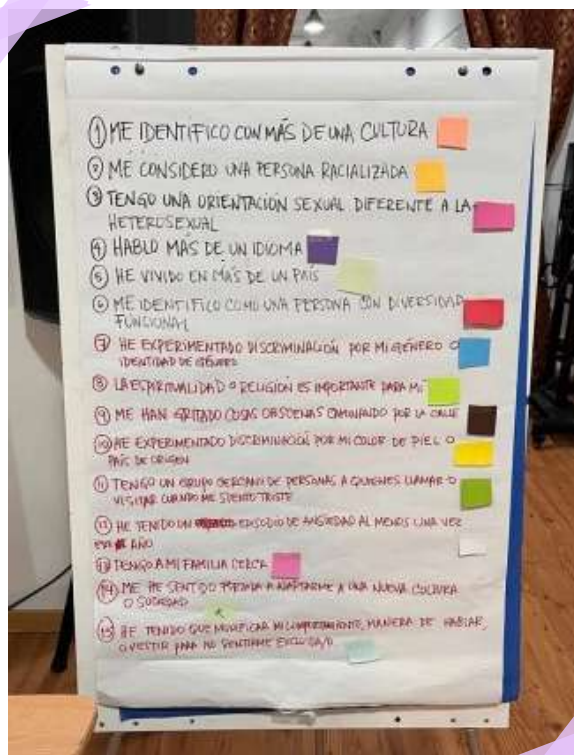 ① ME IDENTIFICO CON MÁS DE UNA CULTURA
② ME CONSIDERO UNA PERSONA RACIALIZADA
③ TENGO UNA ORIENTACIÓN SEXUAL DIFERENTE A LA
HETEROSEXUAL
④ HABLO MÁS DE UN IDIOMA
⑤ HE VIVIDO EN MÁS DE UN PAÍS
⑥ ME IDENTIFICO COMO UNA PERSONA CON DIVERSIDAD
FUNCIONAL
⑦ HE EXPERIMENTADO DISCRIMINACIÓN POR MI GÉNERO O
IDENTIDAD DE GÉNERO
⑧ LA ESPIRITUALIDAD O RELIGIÓN ES IMPORTANTE PARA MI
⑨ ME HAN GRITADO COSAS OBSCENAS CAMINANDO POR LA CALLE
⑩ HE EXPERIMENTADO DISCRIMINACIÓN POR MI COLOR DE PIEL O
PAÍS DE ORIGEN
⑪ TENGO UN GRUPO CERCANO DE PERSONAS A QUIENES LLAMAR O
VISITAR CUANDO ME SIENTO TRISTE
⑫ HE TENIDO UN EPISODIO DE ANSIEDAD AL MENOS UNA VEZ
AÑO
⑬ TENGO A MI FAMILIA CERCA
⑭ ME HE SENTIDO A ADAPTARME A UNA NUEVA CULTURA
O SOCIEDAD
⑮ HE TENIDO QUE MODIFICAR MI COMPORTAMIENTO, MANERA DE HABLAR,
O VESTIR PARA NO SENTIRME